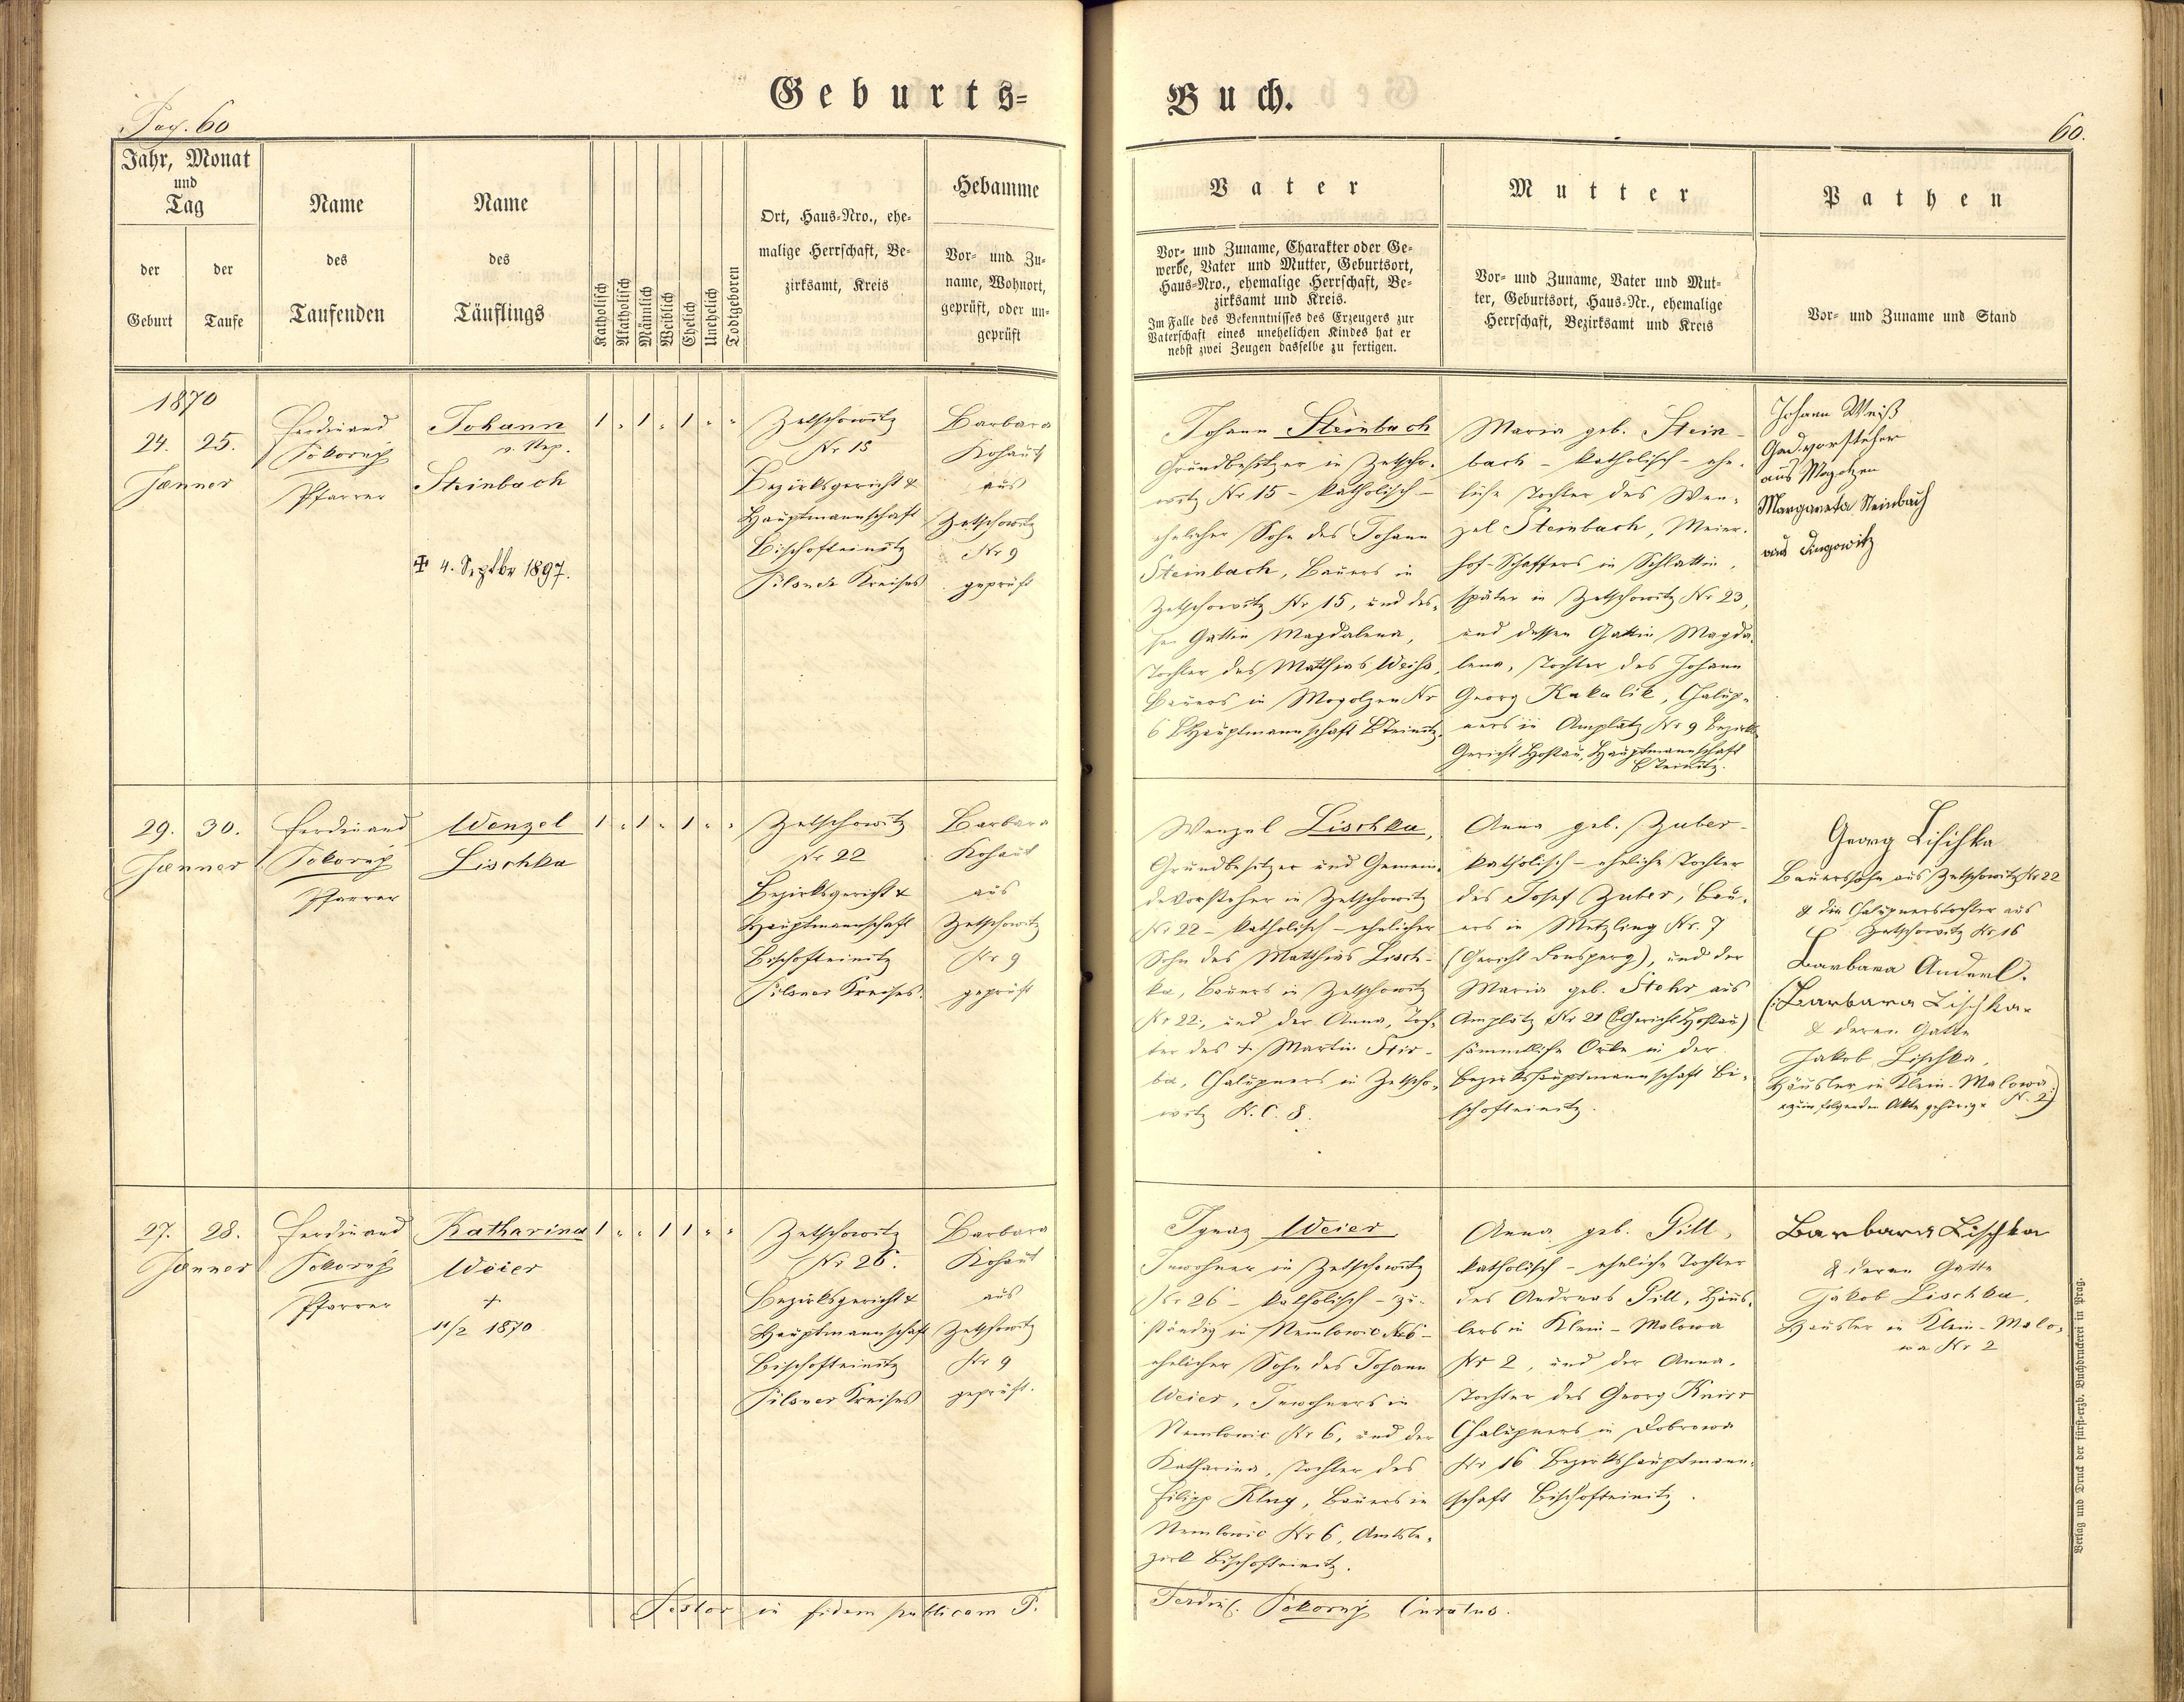 Geburts=
Buch.
Pag. 60
60.
Jahr, Monat
und
Tag
der
Geburt
der
Taufe
Name
des
Taufenden
Name
des
Täuflings
Katholisch
Akatholisch
Männlich
Weiblich
Ehelich
Unehelich
Todtgeboren
Ort, Haus-Nro., ehe-
malige Herrschaft, Be-
zirksamt, Kreis
Hebamme
Vor- und Zu-
name, Wohnort,
geprüft, oder un-
geprüft
Vater
Vor- und Zuname, Charakter oder Ge-
werbe, Vater und Mutter, Geburtsort,
Haus-Nro., ehemalige Herrschaft, Be-
zirksamt und Kreis.
Im Falle des Bekenntnisses des Erzeugers zur
Vaterschaft eines unehelichen Kindes hat er
nebst zwei Zeugen dasselbe zu fertigen.
Mutter
Vor- und Zuname, Vater und Mut-
ter, Geburtsort, Haus-Nr., ehemalige
Herrschaft, Bezirksamt und Kreis
Pathen
Vor- und Zuname und Stand
1870
24. 25.
Jænner
Ferdinand
Pokorny
Pfarrer
Johann
v. Nep.
Steinbach
✠ 4. Septbr 1897.
1 " 1 " 1 " "
Zetschowitz
Nr 15
Bezirksgericht &
Hauptmannschaft
Bischofteinitz
Pilsner Kreises
Barbara
Kohaut
aus
Zetschowitz
Nr 9
geprüft
Johann Steinbach
Grundbesitzer in Zetscho-
witz Nr 15 - katholisch -
ehelicher Sohn des Johann
Steinbach, Bauers in
Zetschowitz Nr 15, und des-
sen Gattin Magdalena,
Tochter des Matthias Weiss,
Bauers in Mogolzen Nr
6 BHauptmannschaft BTeinitz.
Maria geb. Stein-
bach - katholisch - ehe-
liche Tochter des Wen-
zel Steinbach, Meier-
hof-Schaffers in Schlattin,
später in Zetschowitz Nr 23,
und dessen Gattin Magda-
lena, Tochter des Johann
Georg Kukalik, Chalup-
ners in Amplatz Nr 9 Bezirks-
Gericht Hostau, Hauptmannschaft
BTeinitz.
Johann Weiß
Gmd.vorsteher
aus Mogolzen
Margareta Steinbach
aus
29. 30.
Jænner
Ferdinand
Pokorny
Pfarrer
Wenzel
Lischka
1 " 1 " 1 " "
Zetschowitz
Nr 22
Bezirksgericht &
Hauptmannschaft
Bischofteinitz
Pilsner Kreises.
Barbara
Kohaut
aus
Zetschowitz
Nr 9
geprüft
Wenzel Lischka,
Grundbesitzer und Gemein-
devorsteher in Zetschowitz
Nr 22 - katholisch - ehelicher
Sohn des Matthias Lisch-
ka, Bauers in Zetschowitz
Nr 22, und der Anna, Toch-
ter des + Martin
Chalupners in Zetscho-
witz N.C. 8.
Anna geb. Zuber -
katholisch - eheliche Tochter
des Josef Zuber, Bau-
ers in Metzling Nr. 7
(Gericht Ronsperg), und der
Maria geb. Stohr aus
Amplatz Nr 21 (Gericht Hostau)
sämmtliche Orte in der
Bezirkshauptmannschaft Bi-
schofteinitz.
Georg Lischka
Bauerssohn aus Zetschowitz Nr 22
& die Chalupnerstochter aus
Zetschowitz Nr 16
Barbara Anderl.
(:Barbara Lischka.
& deren Gatte
Jakob Lischka,
Häusler in Klein-Malowa
zum folgenden Akte gehörig Nr. 2:)
27. 28.
Jænner
Ferdinand
Pokorny
Pfarrer
Katharina
Weier
+
11/2 1870
1 " " 1 1 " "
Zetschowitz
Nr 26.
Bezirksgericht &
Hauptmannschaft
Bischofteinitz
Pilsner Kreises
Barbara
Kohaut
aus
Zetschowitz
Nr 9
geprüft.
Ignaz Weier
Inwohner in Zetschowitz
Nr 26 - katholisch - zu-
ständig in Nemlowic Nr 6 -
ehelicher Sohn des Johann
Weier, Inwohners in
Nemlowic Nr 6, und der
Katharina, Tochter des
Filipp Klug, Bauers in
Nemlowic Nr 6, Amtsbe-
zirk Bischofteinitz.
Anna geb. Pill,
katholisch - eheliche Tochter
des Andreas Pill, Häus-
lers in Klein-Malowa
Nr 2, und der Anna,
Tochter des Georg Knirr
Chalupners in Dobrowa
Nr 16 Bezirkshauptmann-
schaft Bischofteinitz.
Barbara Lischka
& deren Gatte
Jakob Lischka,
Häusler in Klein-Malo-
wa Nr 2
Testor in fidem publicam P.
Ferdin. Pokorny Curatus.
Verlag und Druck der fürst-erzb. Buchdruckerei in Prag.